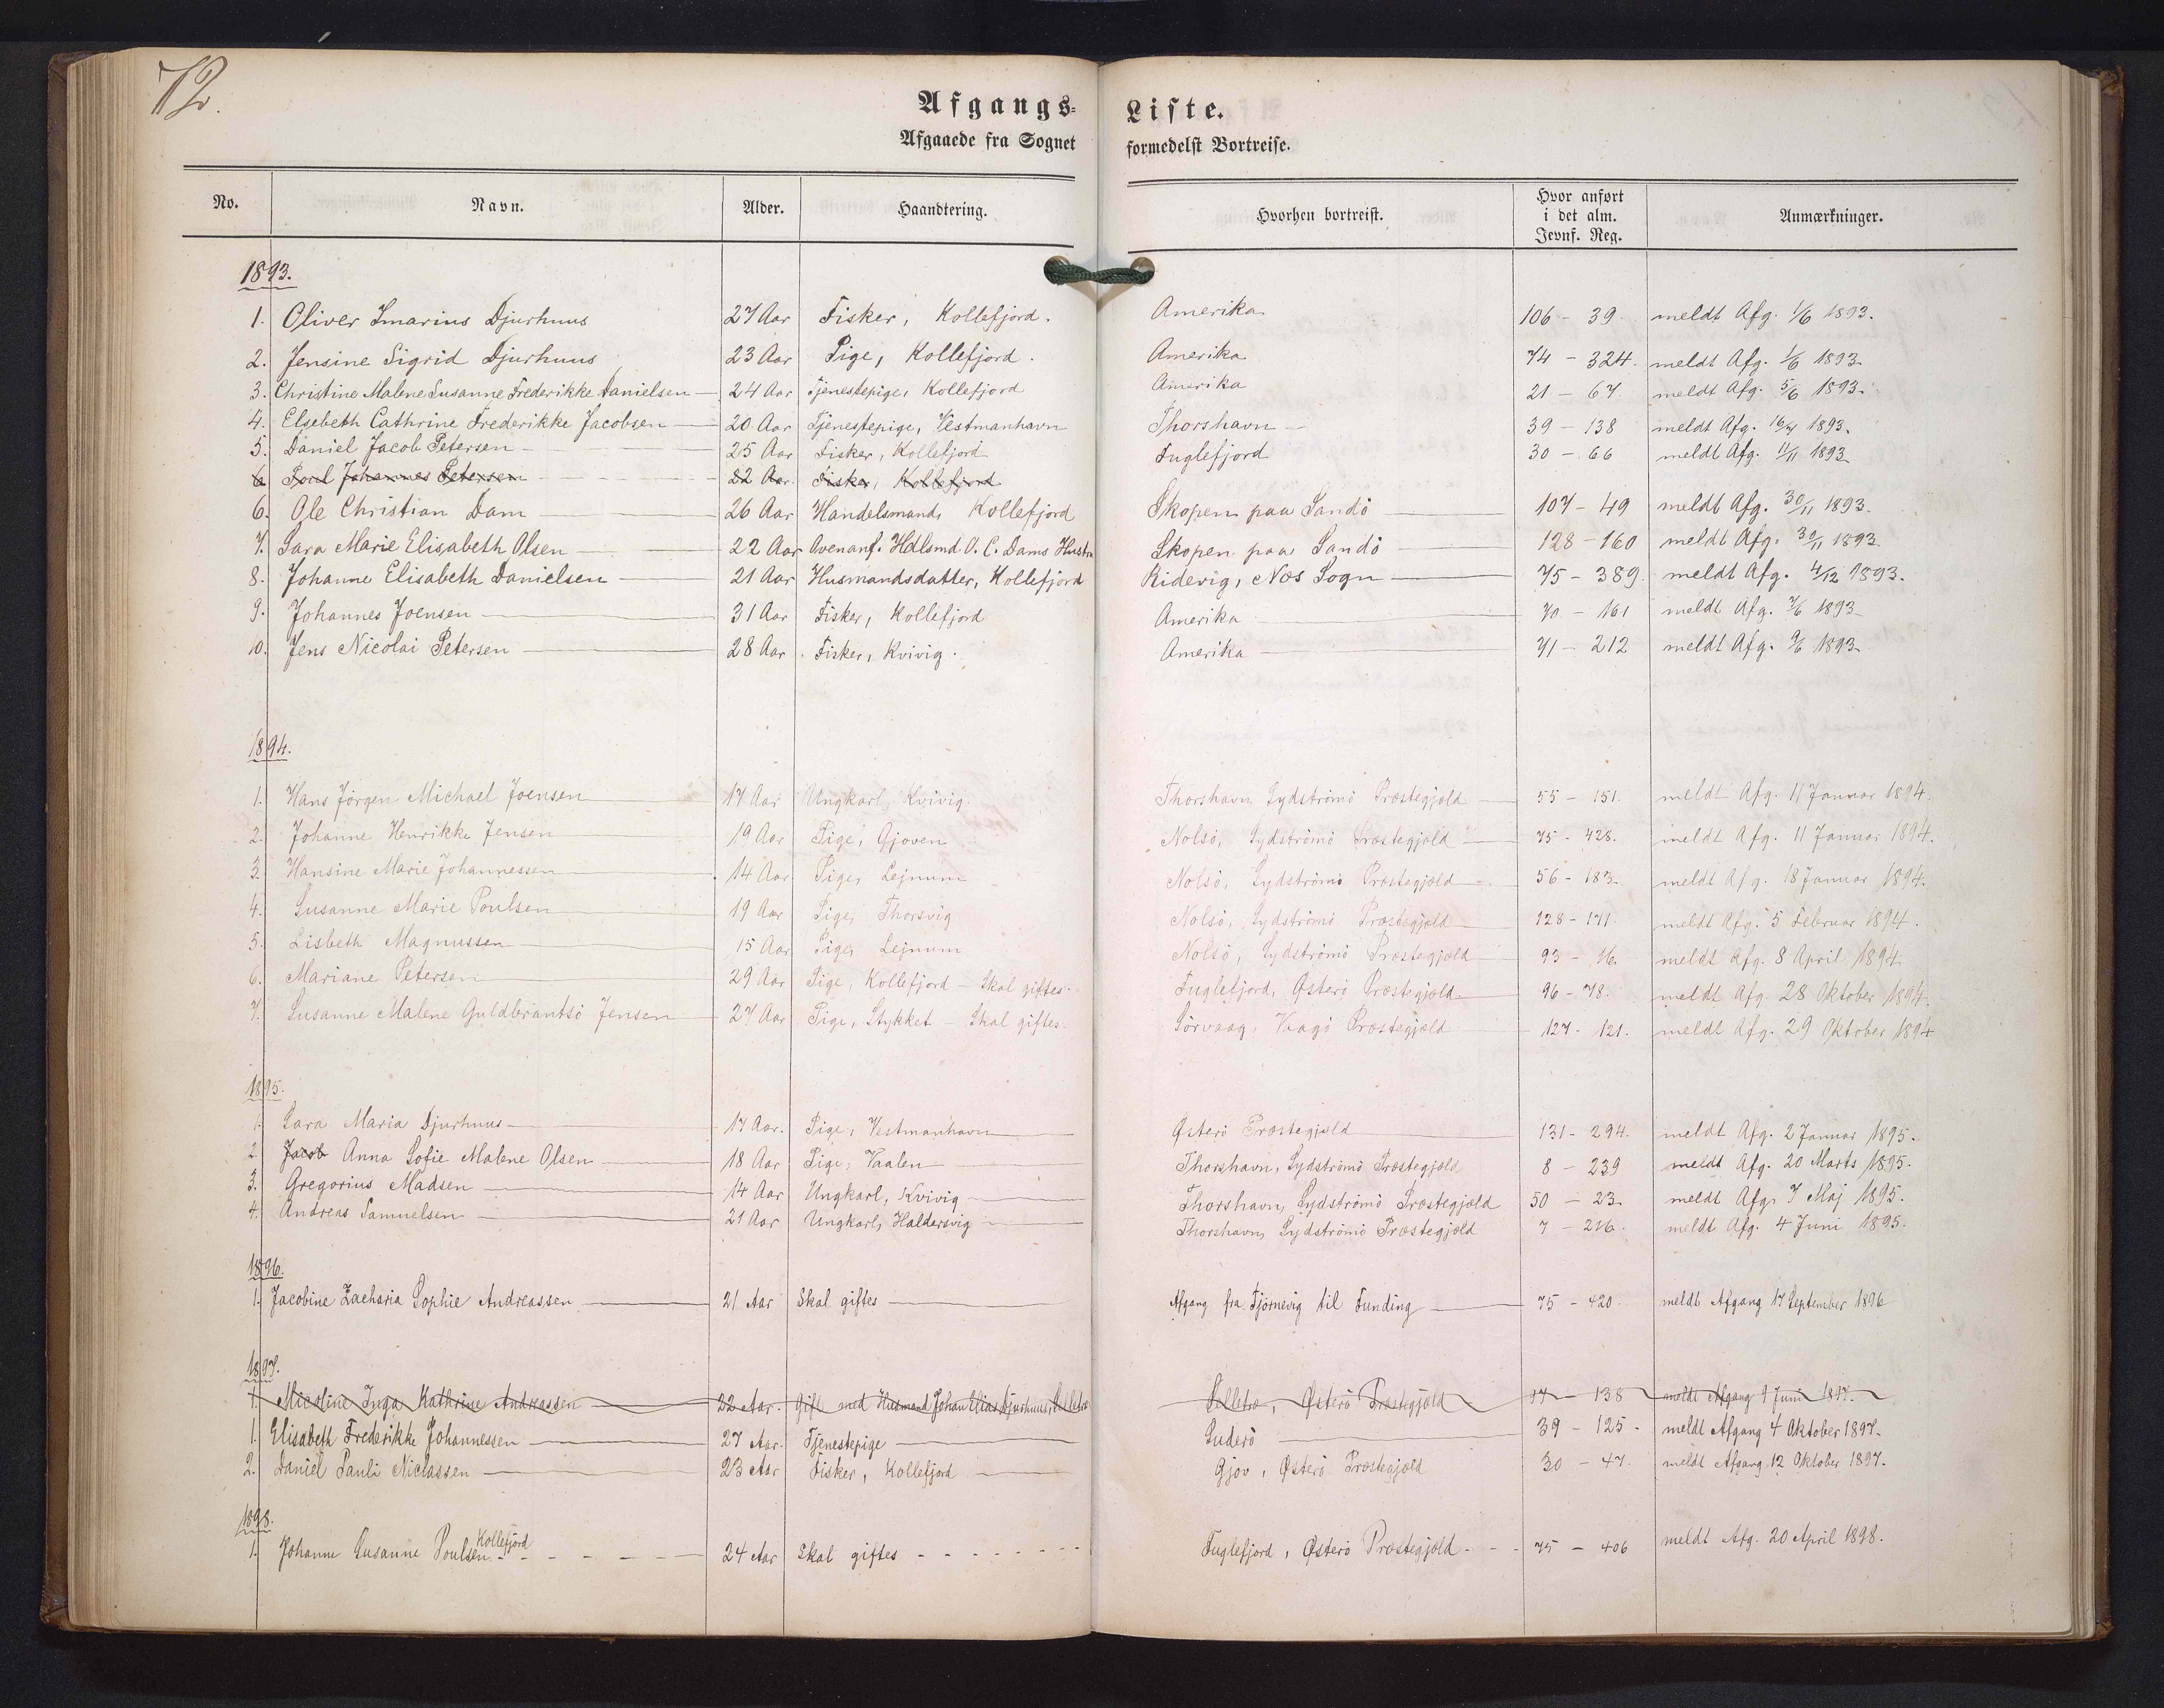 72.
Afgangs-Liste.
Afgaaede fra Sognet formedelst Bortreise.
No. Navn. Alder. Haandtering. Hvorhen bortreist. Hvor anført i det alm. Jevnf. Reg. Anmærkninger.
1893.
1. Oliver Imarius Djurhuus 27 Aar Fisker, Kollefjord. Amerika 106 - 39 meldt Afg. 1/6 1893.
2. Jensine Sigrid Djurhuus 23 Aar Pige, Kollefjord. Amerika 74 - 324. meldt Afg. 1/6 1893.
3. Christine Malene Susanne Frederikke Danielsen 24 Aar Tjenestepige, Kollefjord Amerika 21 - 67 meldt Afg. 5/6 1893.
4. Elsebeth Cathrine Frederikke Jacobsen 20 Aar Tjenestepige, Vestmanhavn Thorshavn 39 - 138 meldt Afg. 1893.
5. Daniel Jacob Petersen 25 Aar Fisker, Kollefjord Fuglefjord 30 - 66 meldt Afg. 11/11 1893
6. Poul Johannes Petersen 22 Aar Fisker, Kollefjord
6. Ole Christian Dam 26 Aar Handelsmand, Kollefjord Skopen paa Sandö 107 - 49 meldt Afg. 30/11 1893.
7. Sara Marie Elisabeth Olsen 22 Aar Ovenanf. Hdlsmd O. C. Dams Hustru Skopen paa Sandö 128 - 160 meldt Afg. 30/11 1893
8. Johanne Elisabeth Danielsen 21 Aar Husmandsdatter, Kollefjord Ridevig, Nes Sogn 75 - 389 meldt Afg. 4/12 1893.
9. Johannes Joensen 31 Aar Fisker, Kollefjord Amerika 70 - 161 meldt Afg. 1893
10. Jens Nicolai Petersen 28 Aar Fisker, Kvivig. Amerika 71 - 212 meldt Afg. 1893
1894.
1. Hans Jörgen Michael Joensen 17 Aar Ungkarl, Kvivig. Thorshavn, Sydströmö Præstegjæld 55 - 151. meldt Afg. 11 Januar 1894.
2. Johanne Henrikke Jensen 19 Aar Pige, Gjoven Nolsö, Sydströmö Præstegjæld 75 - 428. meldt Afg. 11 Januar 1894.
3. Hansine Marie Johannessen 14 Aar Pige, Lejnum Nolsö, Sydströmö Præstegjæld 56 - 183. meldt Afg. 18 Januar 1894.
4. Susanne Marie Poulsen 19 Aar Pige, Thorsvig Nolsö, Sydströmö Præstegjæld 128 - 171. meldt Afg. 5 Februar 1894.
5. Lisbeth Magnussen 15 Aar Pige, Lejnum Nolsö, Sydströmö Præstegjæld 93 - 16. meldt Afg. 8 April 1894.
6. Mariane Petersen 29 Aar Pige, Kollefjord - Skal giftes. Fuglefjord, Østerö Præstegjæld 96 - 78. meldt Afg. 28 Oktober 1894.
7. Susanne Malene Guldbrantsö Jensen 27 Aar Pige, Stykket - Skal giftes. Sörvaag, Vaagö Præstegjæld 127 - 121. meldt Afg. 29 Oktober 1894
1895.
1. Sara Maria Djurhuus 17 Aar. Pige, Vestmanhavn Østerö Præstegjæld 131 - 294. meldt Afg. 2 Januar 1895.
2. Jacob Anna Sofie Malene Olsen 18 Aar Pige, Vaalen Thorshavn, Sydströmö Præstegjæld 8 - 239 meldt Afg. 20 Marts 1895.
3. Gregorius Madsen 14 Aar Ungkarl, Kvivig Thorshavn, Sydströmö Præstegjæld 50 - 23. meldt Afg. 7 Maj 1895.
4. Andreas Samuelsen 21 Aar Ungkarl, Haldersvig Thorshavn, Sydströmö Præstegjæld 7 - 216. meldt Afg. 4 Juni 1895.
1896.
1. Jacobine Zacharia Sophie Andreassen 21 Aar Skal giftes Afgang fra Tjörnevig til Funding 75 - 420. meldt Afgang 17 September 1896
1897.
1. Nicoline Inga Kathrine Andreassen 22 Aar. Gift med Husmand Johan Elias Djurhuus, Selletræ Selletræ, Østerö Præstegjæld 97 - 138 meldt Afgang 9 Juni 1897.
1. Elisabeth Frederikke Johannessen 27 Aar. Tjenestepige Suderö 39 - 125 - meldt Afgang 4 Oktober 1897.
2. Daniel Pauli Niclassen 23 Aar Fisker, Kollefjord Gjov, Østerö Præstegjæld 30 - 47. meldt Afgang 12 Oktober 1897.
1898.
1. Johanne Susanne Poulsen Kollefjord 24 Aar Skal giftes Fuglefjord, Østerö Præstegjæld 75 - 406 meldt Afg. 20 April 1898.